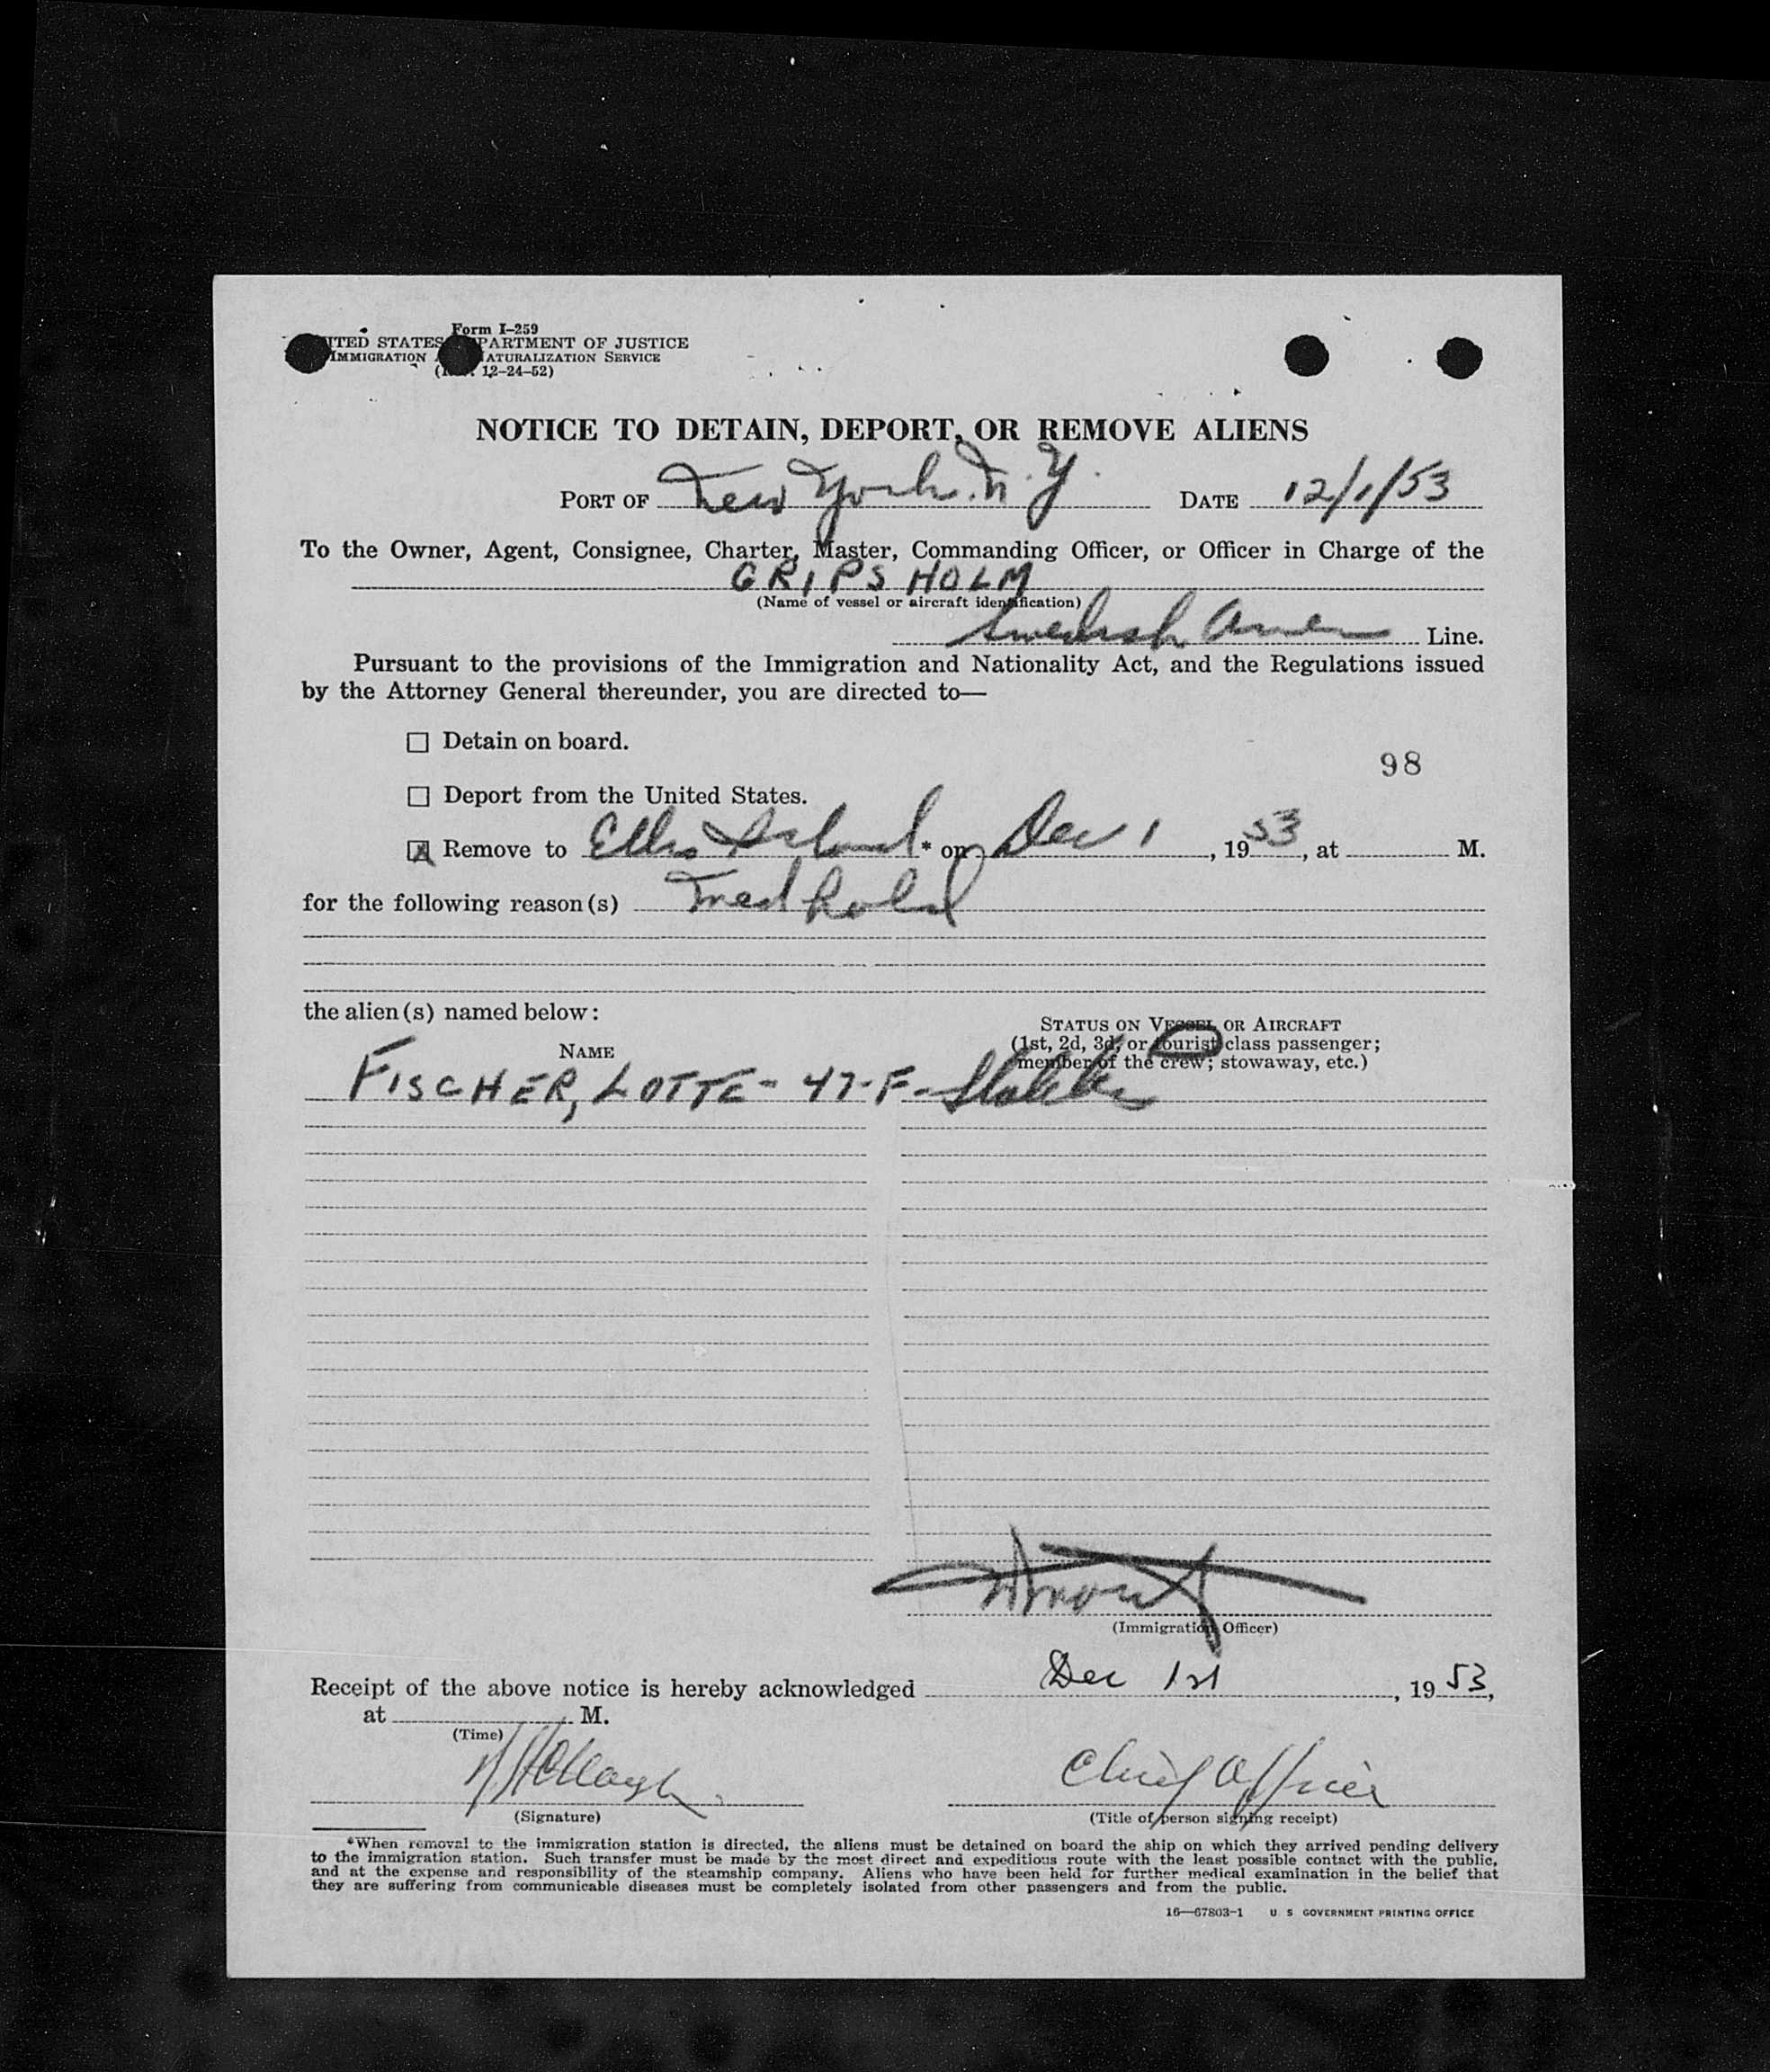 Form I-259
ITED STATES PARTMENT OF JUSTICE
IMMIGRATION A NATURALIZATION SERVICE
( 12-24-52)
NOTICE TO DETAIN, DEPORT, OR REMOVE ALIENS
PORT OF New York. N.Y. DATE 12/1/53
To the Owner, Agent, Consignee, Charter, Master, Commanding Officer, or Officer in Charge of the
GRIPSHOLM
(Name of vessel or aircraft identification)
Swedish Amer Line.
Pursuant to the provisions of the Immigration and Nationality Act, and the Regulations issued
by the Attorney General thereunder, you are directed to—
Detain on board.
98
Deport from the United States.
Remove to Ellis Island * on Dec 1, 1953, at M.
for the following reason(s) Med hold
the alien(s) named below:
STATUS ON VESSEL OR AIRCRAFT
NAME (1st, 2d, 3d, or tourist class passenger;
member of the crew; stowaway, etc.)
FISCHER, LOTTE - 47-F-
(Immigration Officer)
Receipt of the above notice is hereby acknowledged Dec 1st, 1953,
at M.
(Time)
Chief Officer
(Signature) (Title of person signing receipt)
*When removal to the immigration station is directed, the aliens must be detained on board the ship on which they arrived pending delivery
to the immigration station. Such transfer must be made by the most direct and expeditious route with the least possible contact with the public,
and at the expense and responsibility of the steamship company. Aliens who have been held for further medical examination in the belief that
they are suffering from communicable diseases must be completely isolated from other passengers and from the public.
16—67803-1 U S GOVERNMENT PRINTING OFFICE